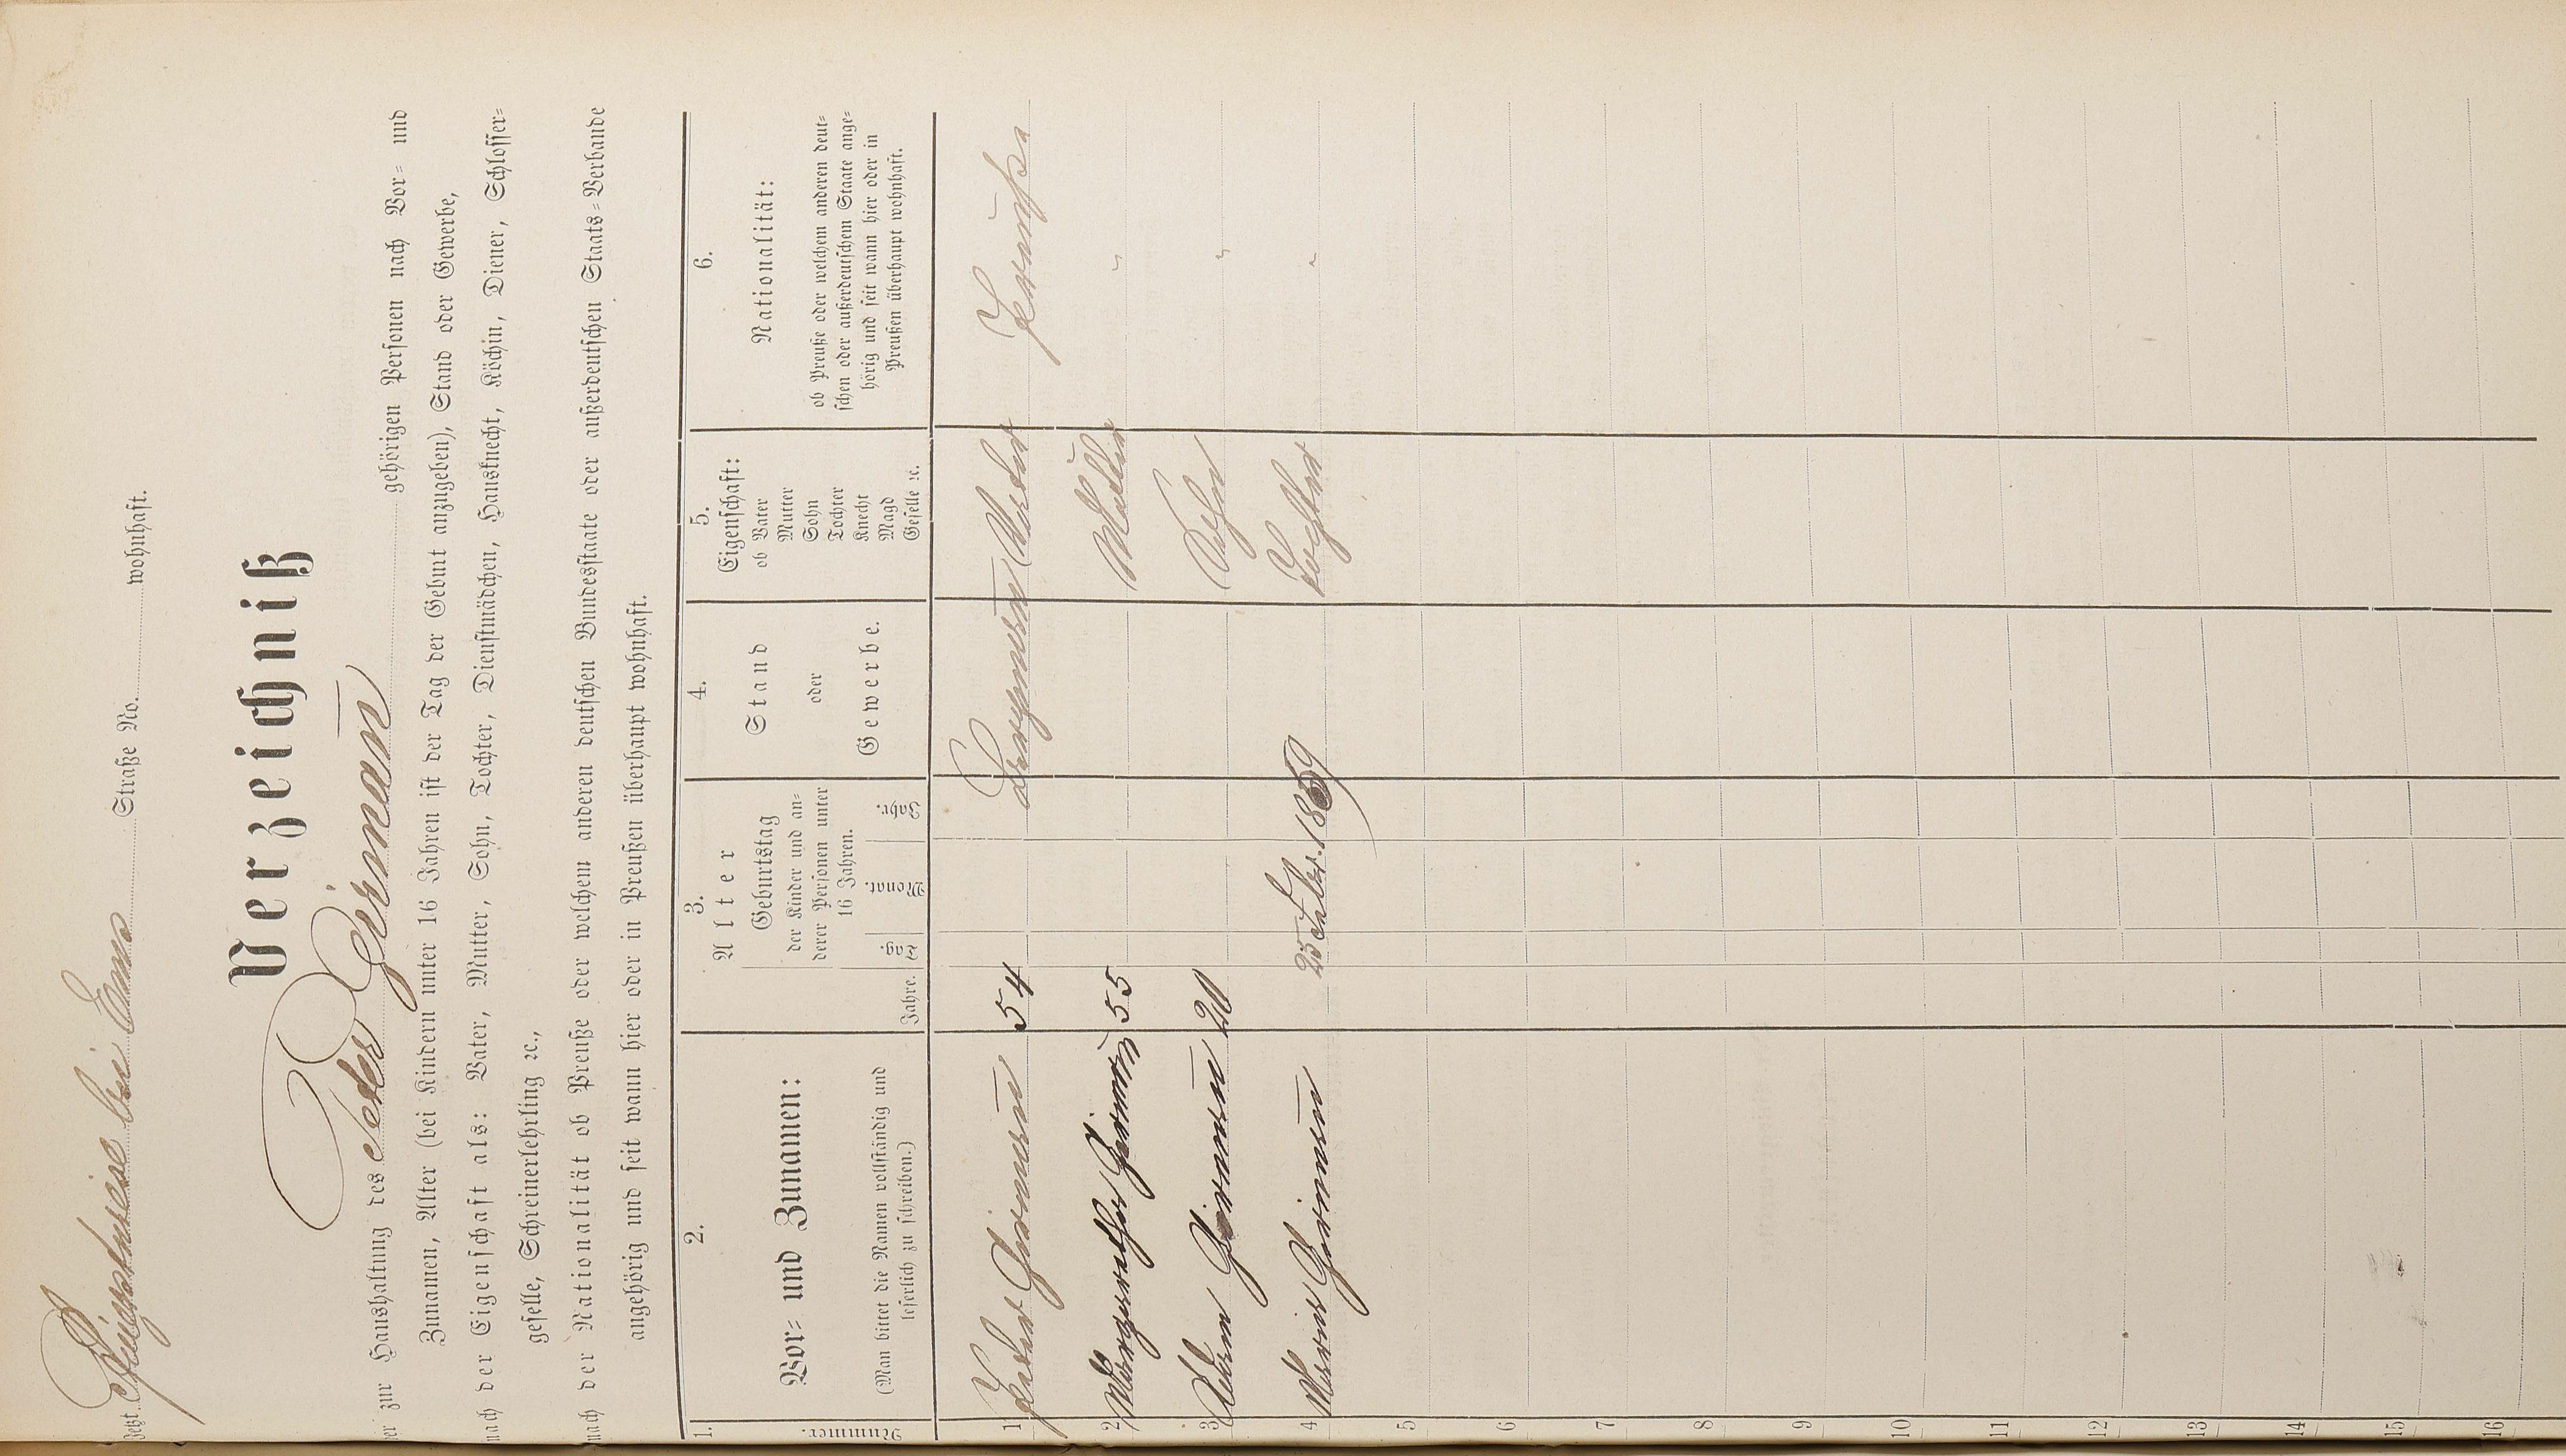 Jetzt Pfingstwiese bei Ems Straße No. wohnhaft.
Verzeichniß
der zur Haushaltung des Peter Girmañ gehörigen Personen nach Vor= und
Zunamen, Alter (bei Kindern unter 16 Jahren ist der Tag der Geburt anzugeben), Stand oder Gewerbe,
nach der Eigenschaft als: Vater, Mutter, Sohn, Tochter, Dienstmädchen, Hausknecht, Köchin, Diener, Schlosser=
geselle, Schreinerlehrling ꝛc.,
nach der Nationalität ob Preuße oder welchem anderen deutschen Bundesstaate oder außerdeutschen Staats=Verbande
angehörig und seit wann hier oder in Preußen überhaupt wohnhaft.
1. 2. 3. 4. 5. 6.
Nummer.
Vor= und Zunamen:
(Man bittet die Namen vollständig und
leserlich zu schreiben.)
Alter
Jahre.
Geburtstag
der Kinder und an=
derer Personen unter
16 Jahren.
Tag. Monat. Jahr.
Stand
oder
Gewerbe.
Eigenschaft:
ob Vater
Mutter
Sohn
Tochter
Knecht
Magd
Geselle ꝛc.
Nationalität:
ob Preuße oder welchem anderen deut=
schen oder außerdeutschem Staate ange=
hörig und seit wann hier oder in
Preußen überhaupt wohnhaft.
1 Peter Girmañ 54 Bergmañ Vater Preuße
2 Margarethe Girmañ 55 Mutter "
3 Adam Girmañ 20 Sohn "
4 Maria Girmañ 25 1859 Tochter "
5
6
7
8
9
10
11
12
13
14
15
16